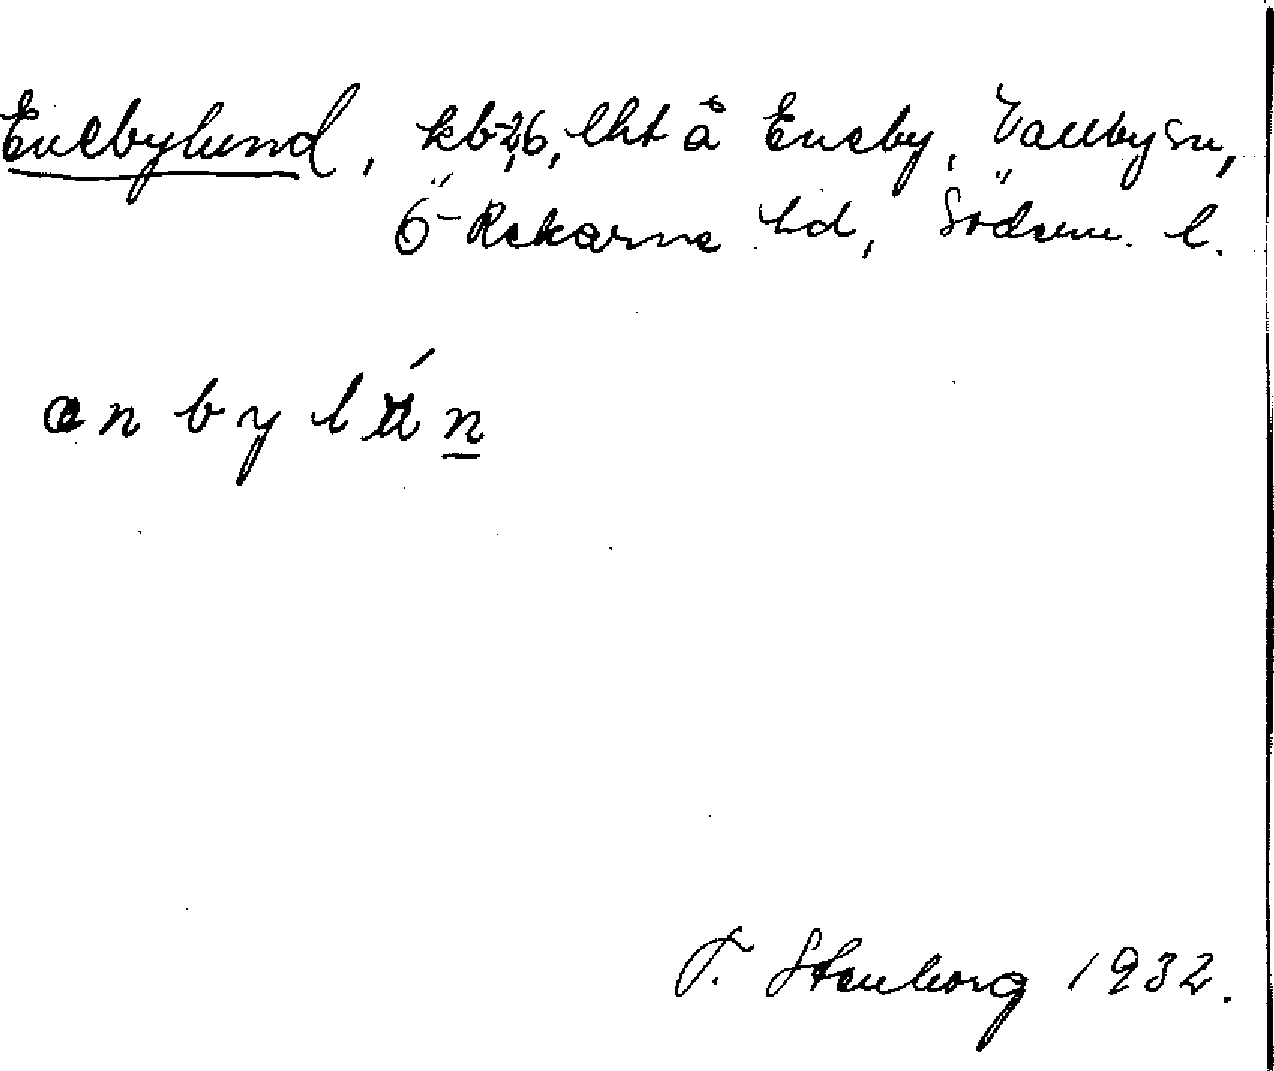 Enebylund, kb-26, lht å Eneby, Vallby sn,
Ö-Rekarne hd, Söderm. l.
enbylún
T. Stenborg 1932.